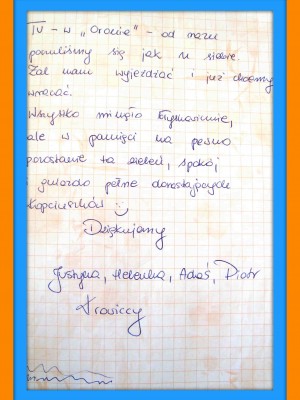 IV - w „Oronie" - od razu
poczuliśmy się jak u siebie.
Żal nam wyjeżdżać i już chcemy
wracać.
Wszystko minęło błyskawicznie,
ale w pamięci na pewno
pozostanie ta zieleń, spokój
i gniazdo pełne dorastających
kopciuszków :)
Dziękujemy
Justyna, Helenka, Adaś, Piotr